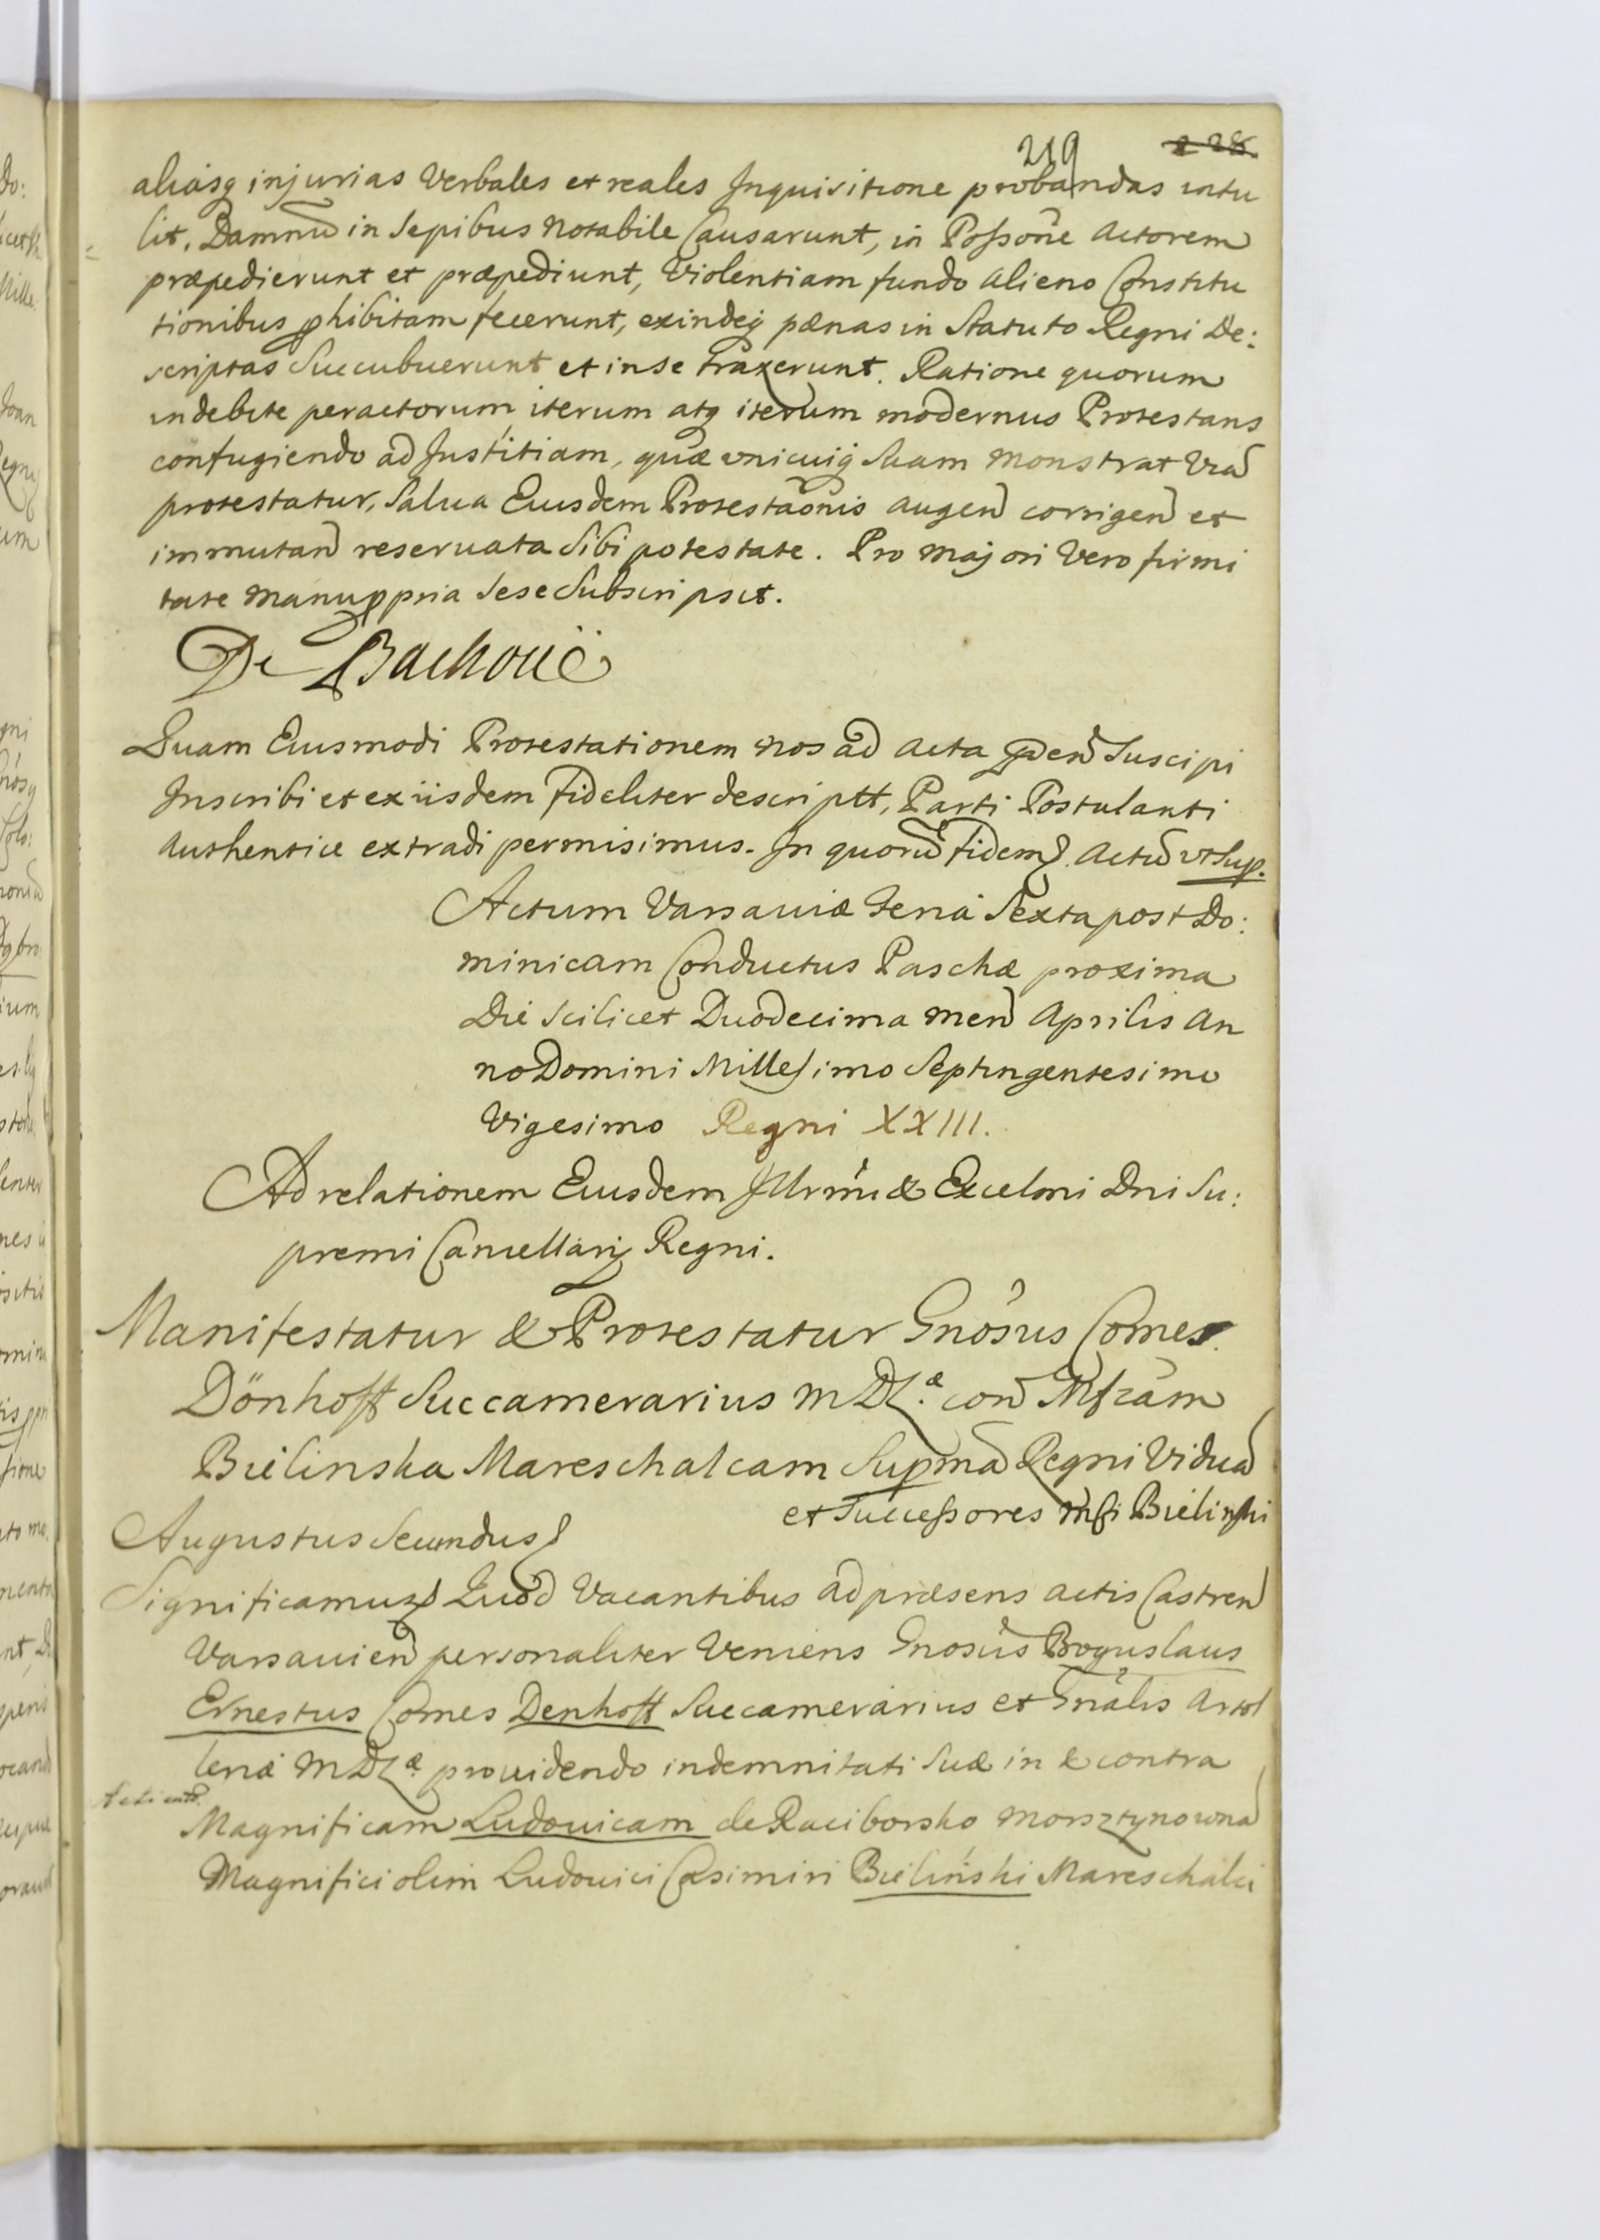 219 228.
aliasq injurias Verbales et reales Inquisitione probandas intu
lit. Damnū in Sepibus Notabile Causarunt, in Possōne Actorem
præpedierunt et præpediunt, Violentiam fundo alieno Constitu
tionibus phibitam fecerunt, exindeq pænas in Statuto Regni De:
scriptas Succubuerunt et in se traxerunt. Ratione quorum
indebite peractorum iterum atq iterum modernus Protestans
confugiendo ad Justitiam, quæ unicuiq Suam monstrat Viā
protestatur, Salua Eiusdem Protestaōnis augen̄ corrigen̄ et
immutan̄ reseruata Sibi potestate. Pro majori Vero firmi
tate manu ppria Sese Subscripsit.
De Bachoüe
Quam Eiusmodi Protestationem nos ad Acta pden̄ Suscipi
Inscribi et ex iisdem fideliter descriptt, Parti Postulanti
Authentice extradi permisimus. In quorū fidem. Actū ut Sup.
Actum Varsauiæ Feria Sexta post Do:
minicam Conductus Paschæ proxima
Die Scilicet Duodecima men̄ Aprilis An
no Domini Millesimo Septingentesimo
Vigesimo Regni XXIII.
Ad relationem Eiusdem Illrmi & Excelmi Dni Su:
premi Cancellarij Regni.
Manifestatur & Protestatur Gnosus Comes
Dönhoff Succamerarius M D L.æ con̄ Mfcam
Bielinska Mareschalcam Supmā Regni Viduā
et Successores Mfi Bielinski
Augustus Secundus
Significamus Quod Vacantibus ad præsens actis Castren̄
Varsauien̄ personaliter Veniens Gnosus Boguslaus
Ernestus Comes Denhoff Succamerarius et Gnalis Artol
leriæ M D L æ. prouidendo indemnitati Suæ in & contra
Magnificam Ludouicam de Raciborsko Morsztynownā
Magnifici olim Ludouici Casimiri Bielinski Mareschalci